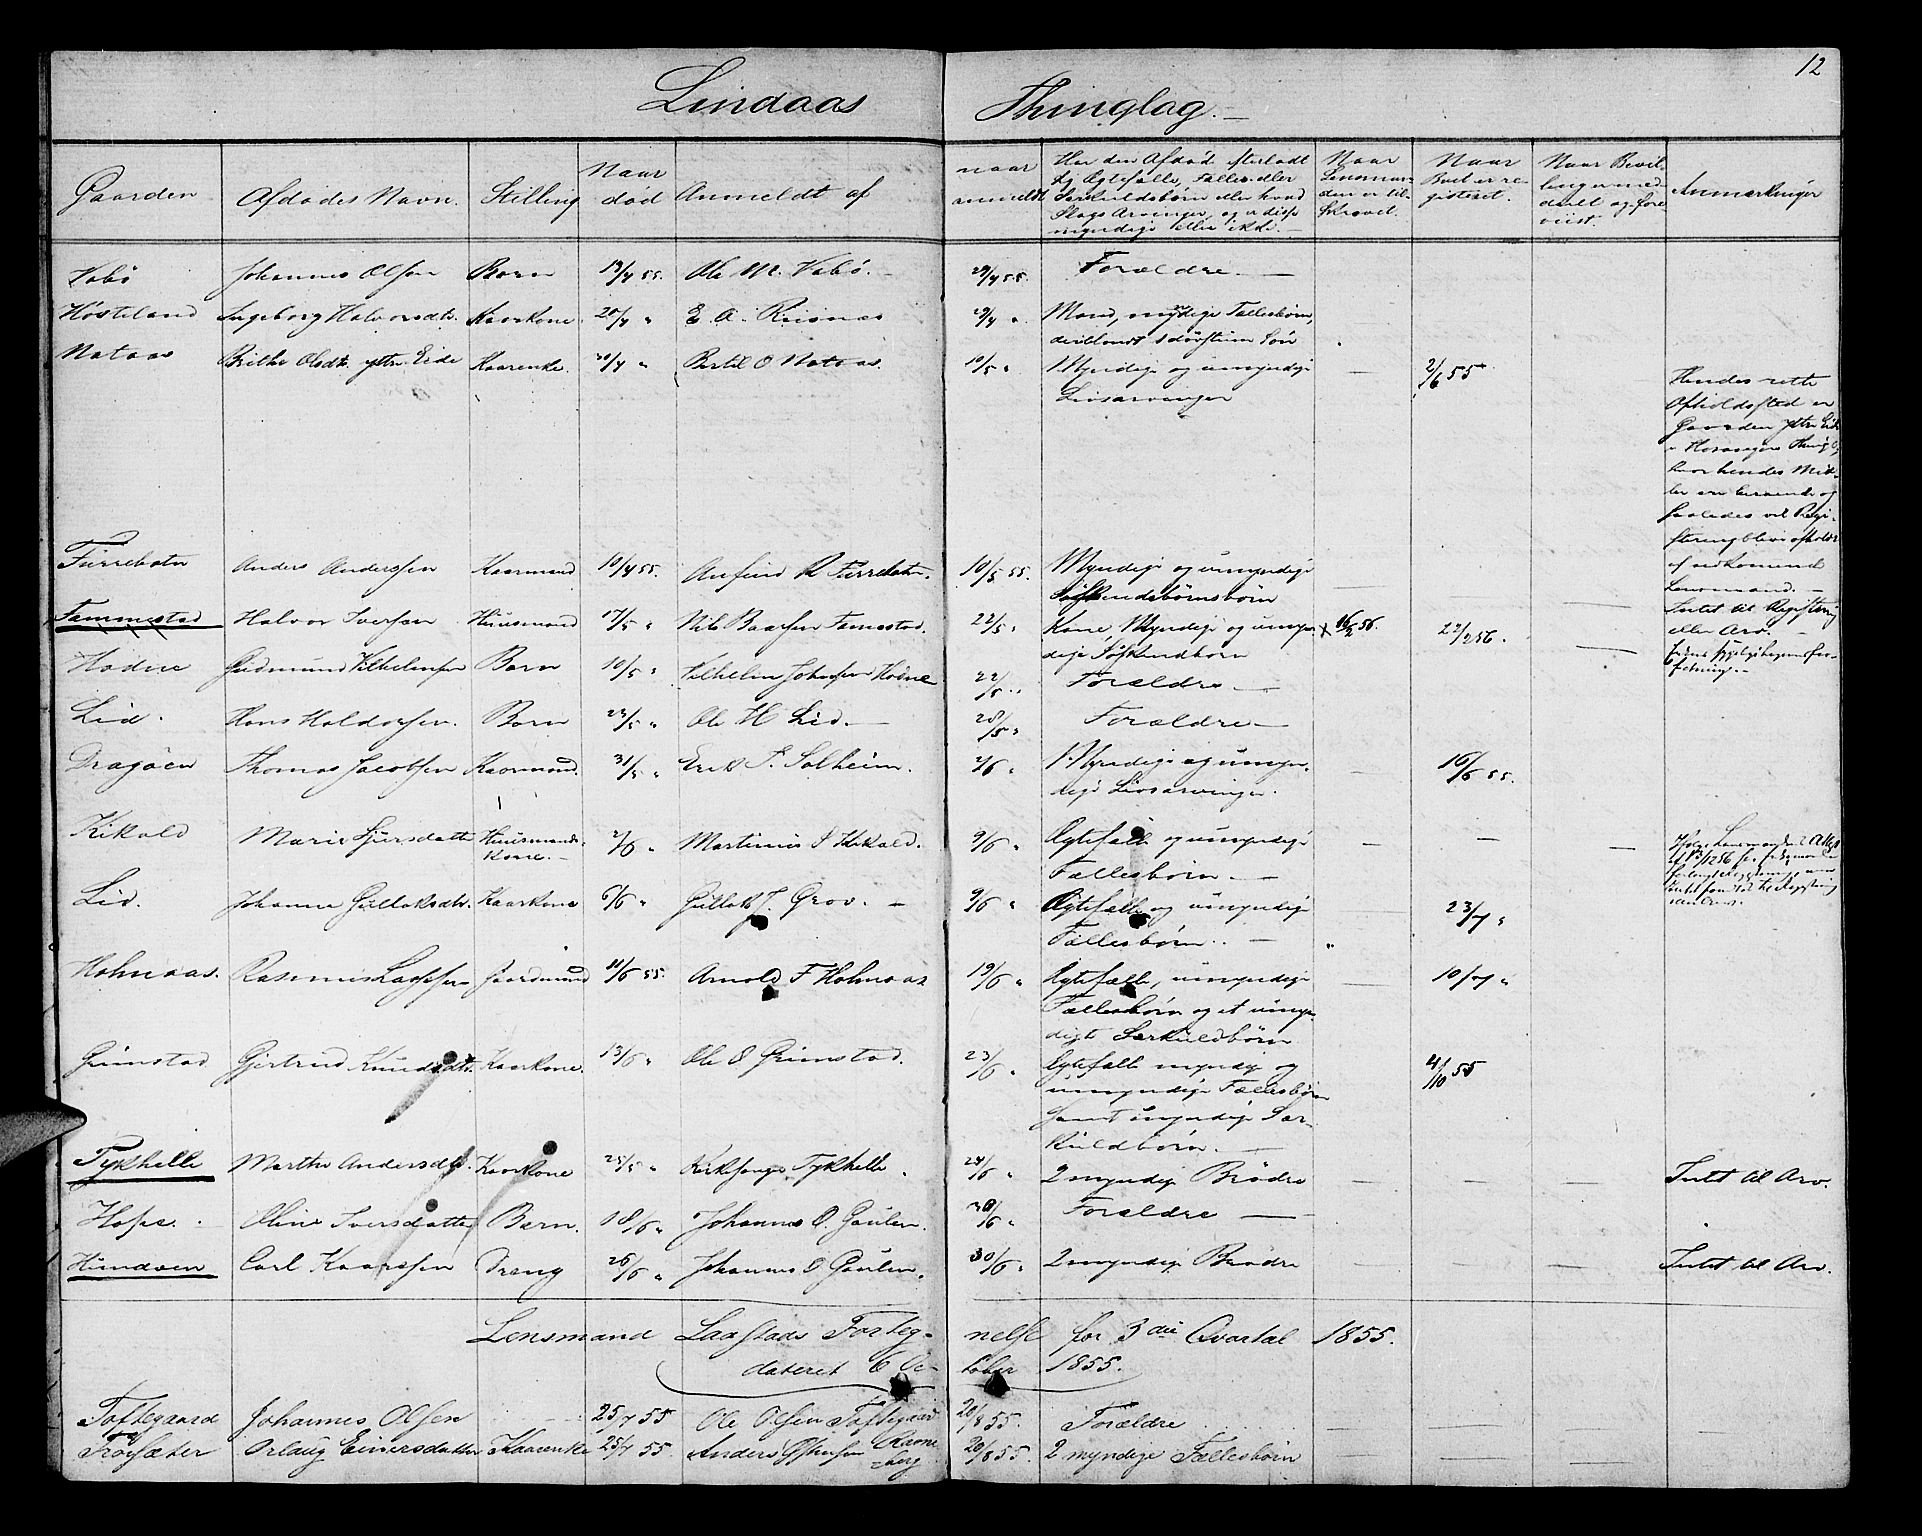 12
Lindaas Thinglag.
Gaarden Afdødes Navn. Stilling Naar død Anmeldt af naar anmeldt Har den Afdøde efterladt sig Ægtefælle, Fælles eller Særkuldsbørn eller hvad Slags Arvinger, og er disse myndige eller ikke. Naar Lensmanden er tilskrevet. Naar Boet er registeret. Naar Bevilling er meddeelt og foreviist. Anmærkninger
Vabø Johannes Olsen Barn 13/4 55. Ole M. Vabø. 29/4 55. Forældre.
Høsteland Ingeborg Halvorsdtr. Kaarkone. 20/4 " E. A. Riisnæs 29/4 ". Mand, myndige Fællesbørn,
Nataas Brithe Olsdtr. ytre Eide Kaarenke. 30/4 " Bertil O Nataas. 10/5 " Myndige og umyndige 2/6 55
Livsarvinger
Hendes rette
Opholdssted er
Gaarden ytre Eide
hvor hendes Mid-
ler ere beroende og
saaledes vil Regi-
stering blive afholdt
af vedkommende
Lensmand. —
Furrebotn Anders Andersen Kaarmand 10/4 55. Anfind R Furrebotn. 10/5 55. Myndige og umyndige
Søskendebørnsbørn — Intet til Registering
eller Arv.
Fammestad Halvor Iversen Huusmand 17/5 " Nils Baarsen Famestad. 22/5 " Kone, Myndige og umyn- 16/2 56. 22/2 56.
dige Søskendbørn
Hodne Gudmund Vilhelmsen Barn 10/5 " Vilhelm Johnsen Hodne 22/5 " Forældre —
Lid. Hans Haldorsen. Barn 23/5 " Ole H Lid. — 28/5 " Forældre —
Dragøen Thomas Jacobsen Kaarmand. 31/5 " Erik T. Solheim. 2/6 " Myndige og umyn- — 16/6 55.
dige Livsarvinger.
Kikald Marie Sjursdatter Huusmands- 2/6 " Martinus I Kikald. 9/6 " Ægtefælle og umyndige — —
kone. — Fællesbørn. —
Lid. Johanne Gulaksdtr. Kaarkone 6/6 " Gullak J. Grov. — 9/6 " Ægtefælle og umyndige — 23/7 "
Fællesbørn. —
Holmaas. Rasmus Larssen Gaardmand 11/6 55. Arnold F Holmaas 19/6 " Ægtefælle, umyndige — 10/7 "
Fællesbørn og et umyn-
digt Særkuldbørn
Grimstad Gjertrud Knudsdtr. Kaarkone. 13/6 " Ole O Grimstad. 23/6 " Egtefælle myndig og 4/10 55
umyndige Fællesbørn
samt umyndige Sær-
kuldbørn. —
Tykhelle Marthe Andersdtr. Kaarkone 25/5 " Kirkesanger Tykhelle. 24/6 " 2 myndige Brødre — — — Intet til Arv.
Hope. Oline Iversdatter Barn. 18/6 " Johannes O. Gaulen. 30/6 " Forældre —
Hundven Carl Kaarssen Dreng 26/6 " Johannes O Gaulen. 30/6 " 2 myndige Brødre — — — Intet til Arv.
Lensmand Laastads Forteg- nelse for 3die Qvartal 1855.
dateret 6 Oc- tober 1855.
Toftegaard Johannes Olsen 25/7 55 Ole Olsen Toftegaard 20/8 55. Forældre
Trosæter Orlaug Einersdatter Kaarenke 25/7 55 Anders Ravneberg 20/8 55. 2 myndige Fællesbørn